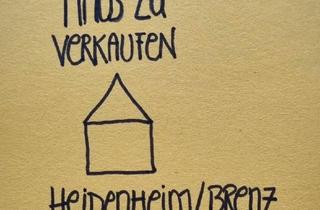 HAUS ZU
VERKAUFEN
HEIDENHEIM/BRENZ